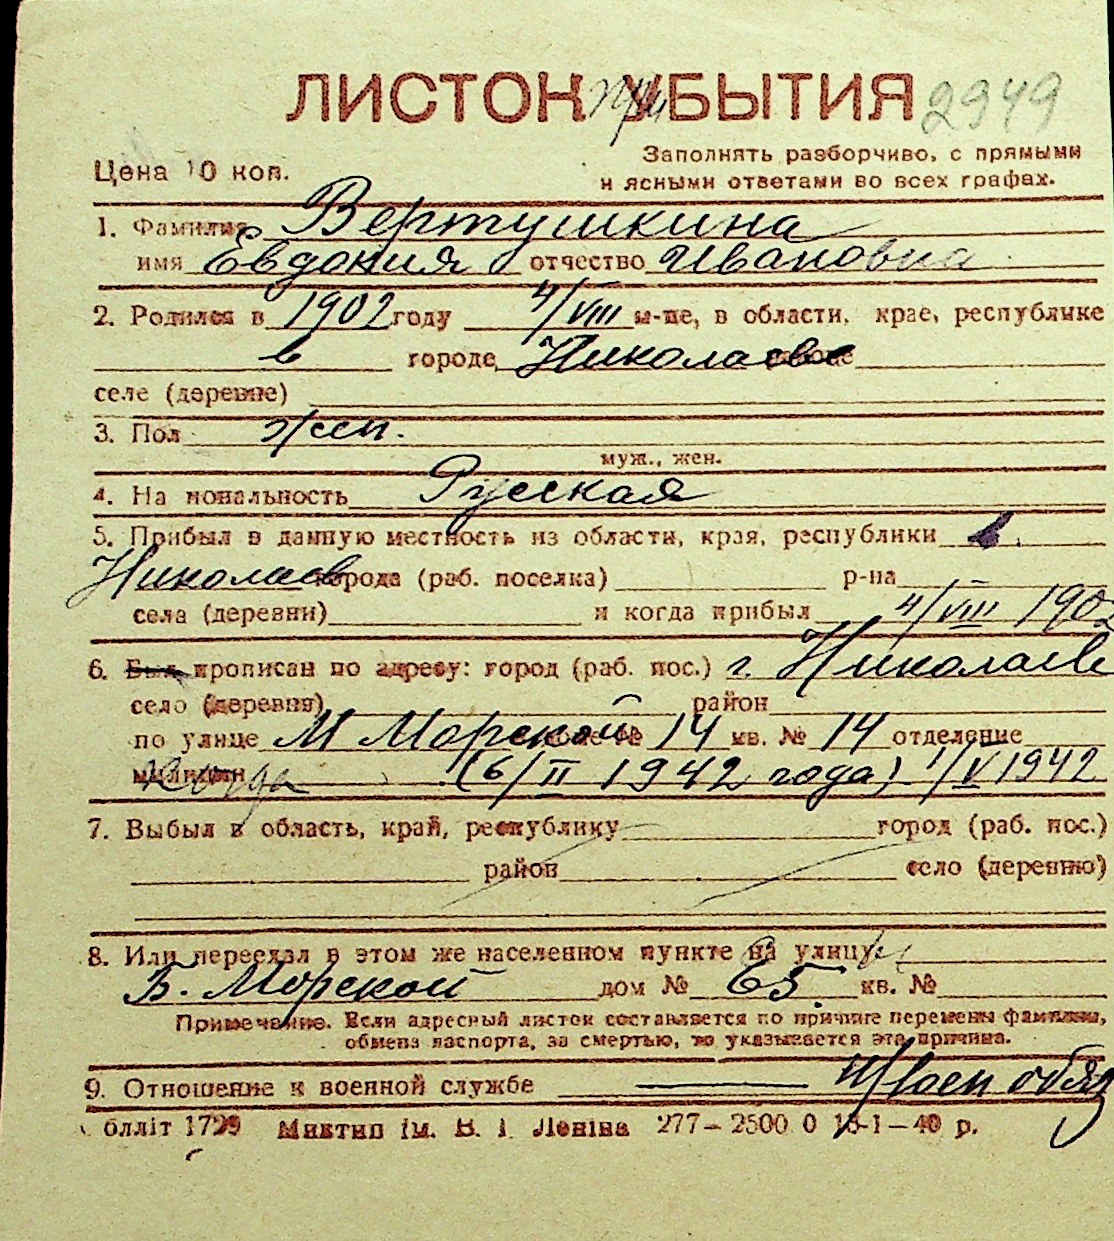 ЛИСТОК УБЫТИЯ 2949
Цена 10 коп.
Заполнять разборчиво, с прямыми
и ясными ответами во всех графах.
1. Фамилия Вертушкина
имя Евдокия отчество Ивановна
2. Родился в 1902 году 4/VIII м-це, в области, крае, республике
в городе Николаеве
селе (деревне)
3. Пол жен.
муж., жен.
4. Национальность Русская
5. Прибыл в данную местность из области, края, республики в
Николаев города (раб. поселка) р-на
села (деревни) и когда прибыл 4/VIII 1902
6. Был прописан по адресу: город (раб. пос.) г. Николаев
село (деревня) район
по улице М Морской 14 кв. № 14 отделение
милиции (6/II 1942 года) 1/V 1942
7. Выбыл в область, край, республику город (раб. пос.)
район село (деревню)
8. Или переехал в этом же населенном пункте на улицу
Б. Морской дом № 65 кв. №
Примечание. Если адресный листок составляется по причине перемены фамилии,
обмена паспорта, за смертью, то указывается эта причина.
9. Отношение к военной службе
обллiт 1799 Миктип iм. В. I. Ленiна 277—2500 0 13-1—40 р.